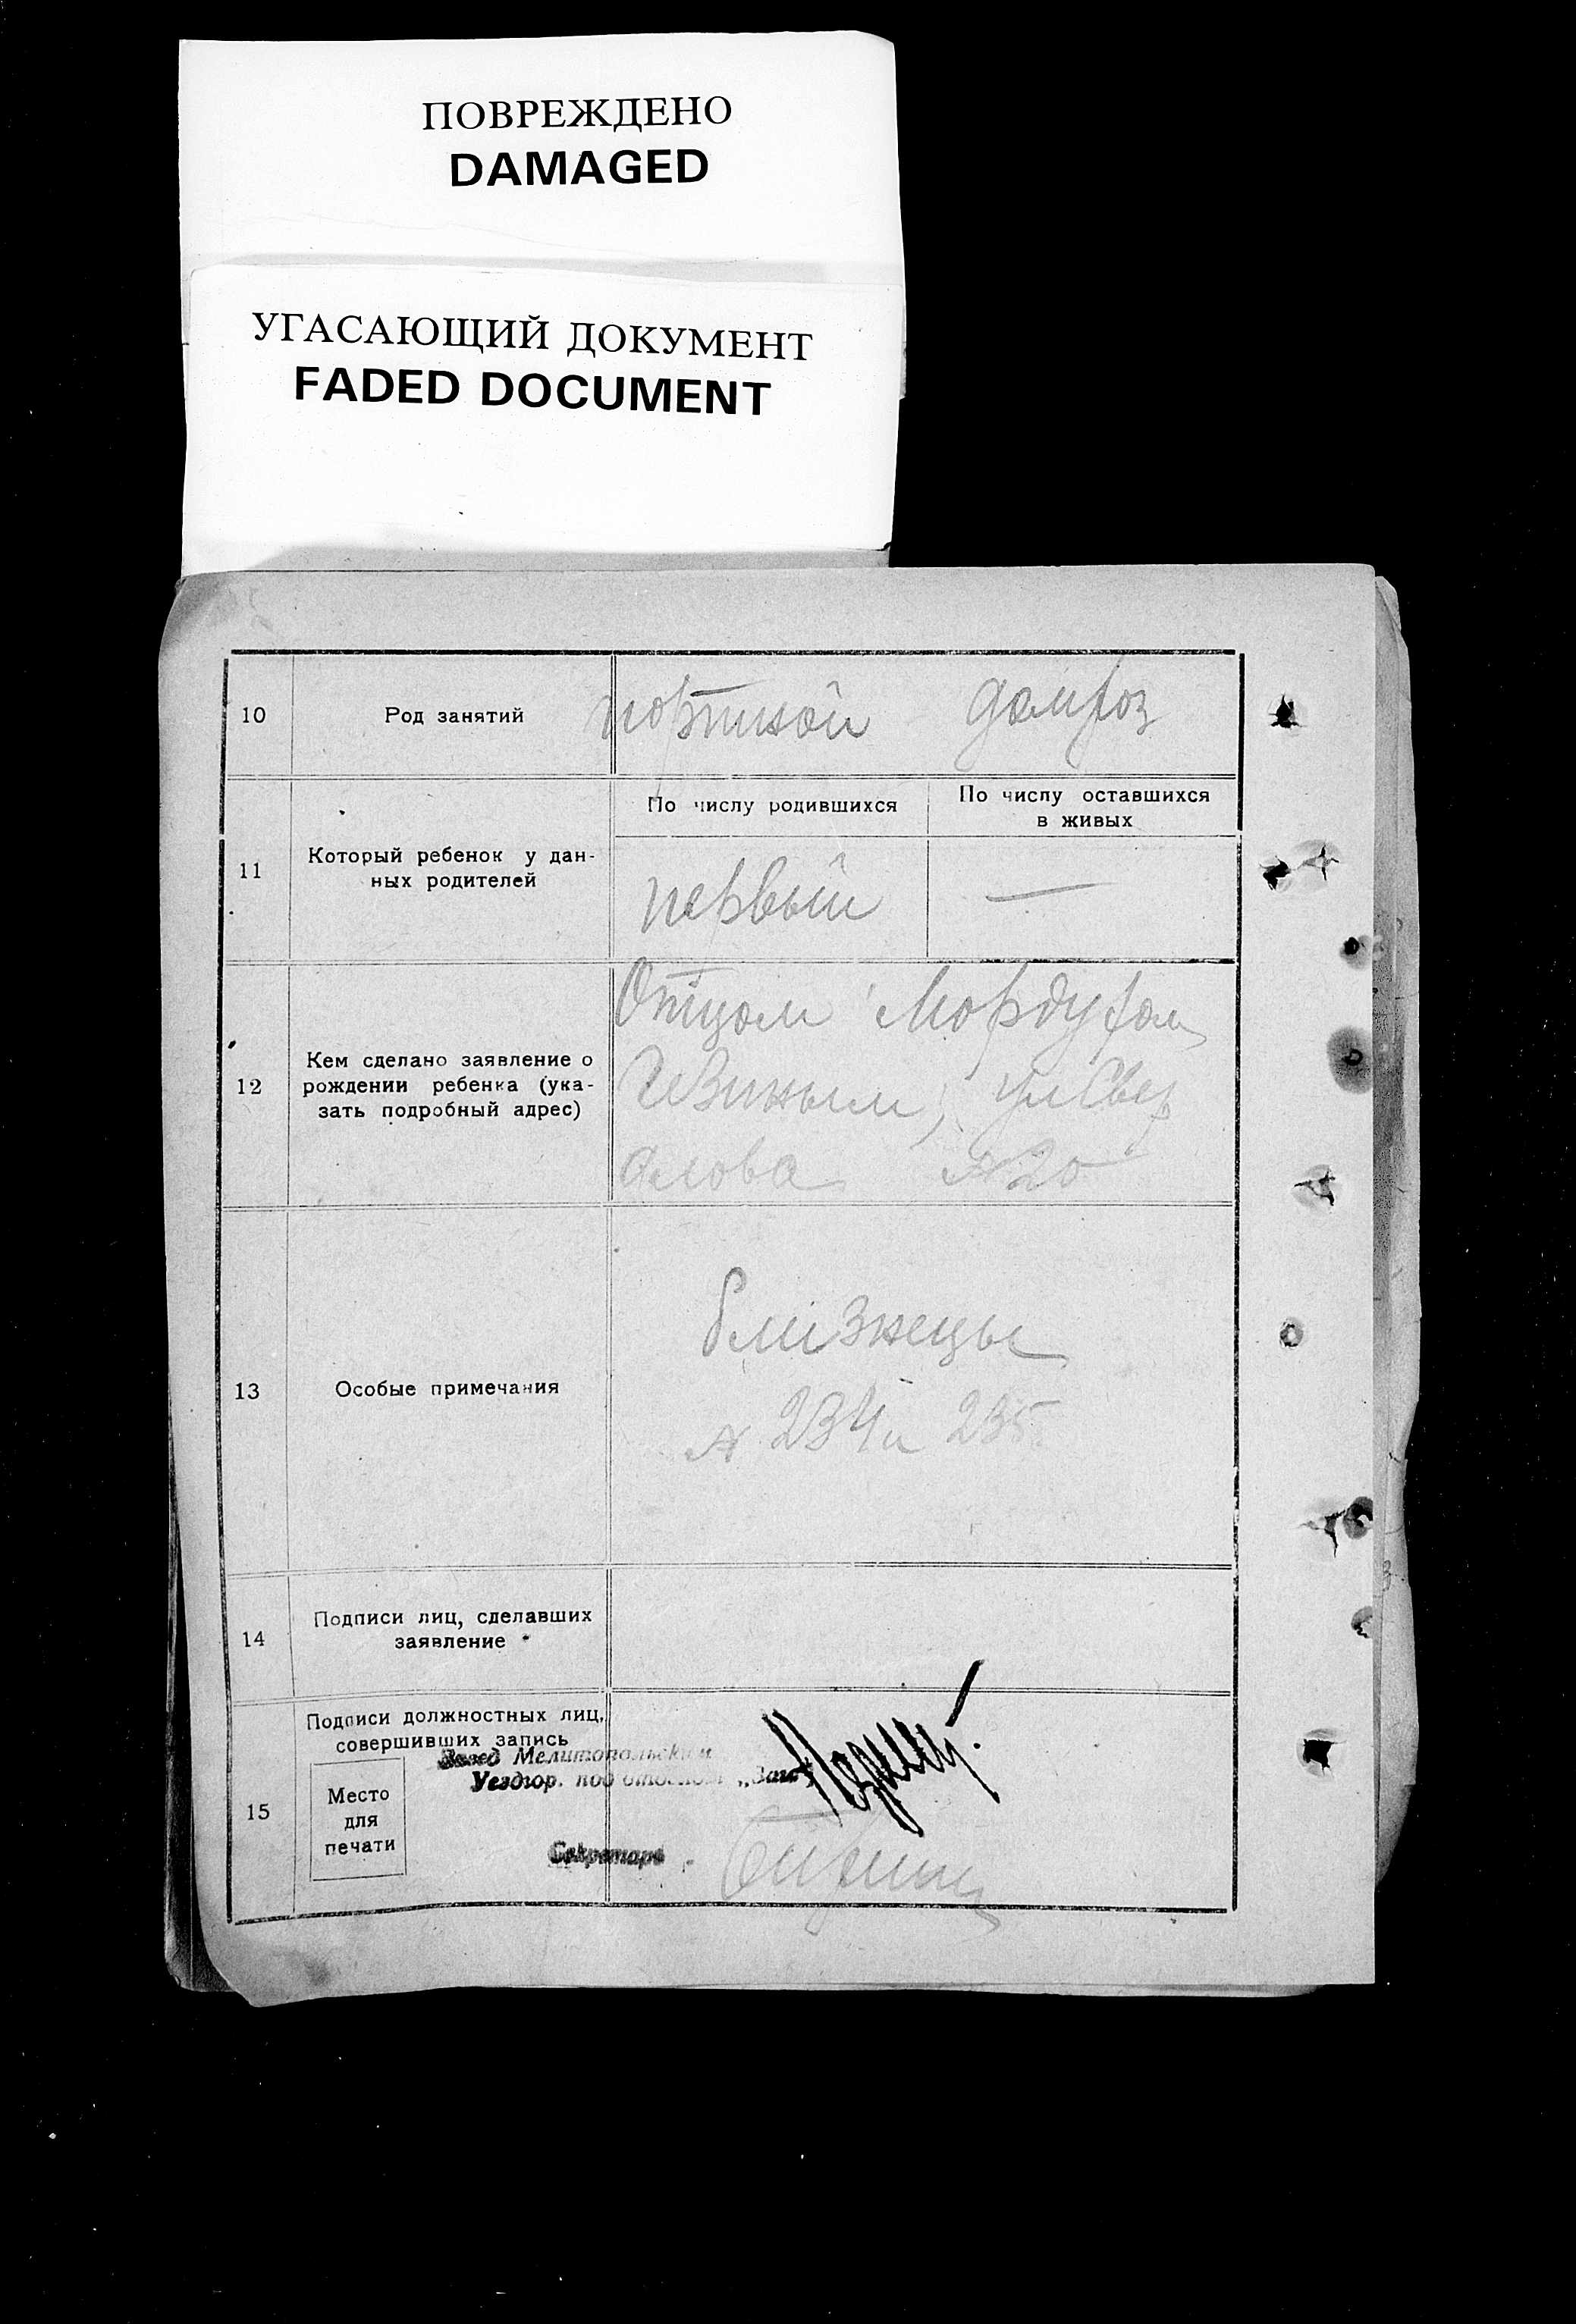 ПОВРЕЖДЕНО
DAMAGED
УГАСАЮЩИЙ ДОКУМЕНТ
FADED DOCUMENT
10
Род занятий
портной домхоз
11
Который ребенок у дан-
ных родителей
По числу родившихся
По числу оставшихся
в живых
первый
—
12
Кем сделано заявление о
рождении ребенка (ука-
зать подробный адрес)
Отцом Мордухом
ул Свер
длова № 20
13
Особые примечания
близнецы
№ 234 и 235
14
Подписи лиц, сделавших
заявление
15
Подписи должностных лиц,
совершивших запись
Место
для
печати
Завед Мелитопольским
Уездгор. под „Загс“
Секретарь